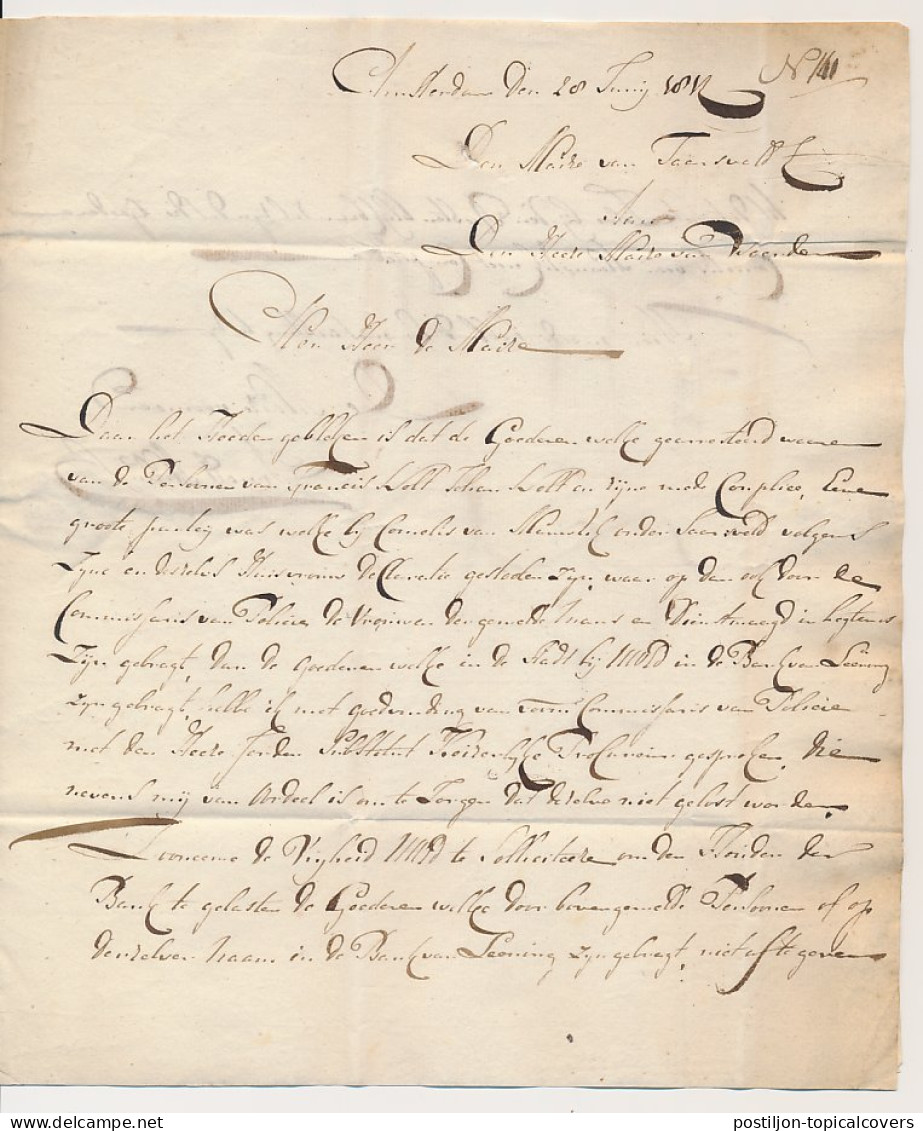 Amsterdam den 28 Junij 181
Den Maire van Jaarsveld
Aan
Den Heere Maire van Woerden
Mon Heer de Maire
Daar het Heeden gebleken is dat de Goederen welke gearresteerd waaren
van de Personen van Francis Johan en zijne mede Complice, Eene
groote partij was welke bij Cornelis van onder Jaarsveld volgens
Zijne en deszelvs Huisvrouws declaratie gestolen zijn, waar op dan ook door de
Commissaris van Policie de Vrouwen der gemelde mans en Dienstmaagd in hegtenis
Zijn gebragt, dan de goederen welke in de Stadt bij UWEd in de Bank van Leening
zijn gebragt, hebbe ik met goedvinding van Commissaris van Policie
met den Heere Substitut Keizerlijke Procureur gesproken, die
nevens mij van ordeel is om te zorgen dat dezelve niet gelost worden.
zoo neeme de Vrijheid UWEd te Solliciteere om den Houder der
Bank te gelasten de Goederen welke door bovengemelde Personen of op
derzelver naam in de Bank van Leening zijn gebragt, niet af te geven
postiljon-topicalcovers